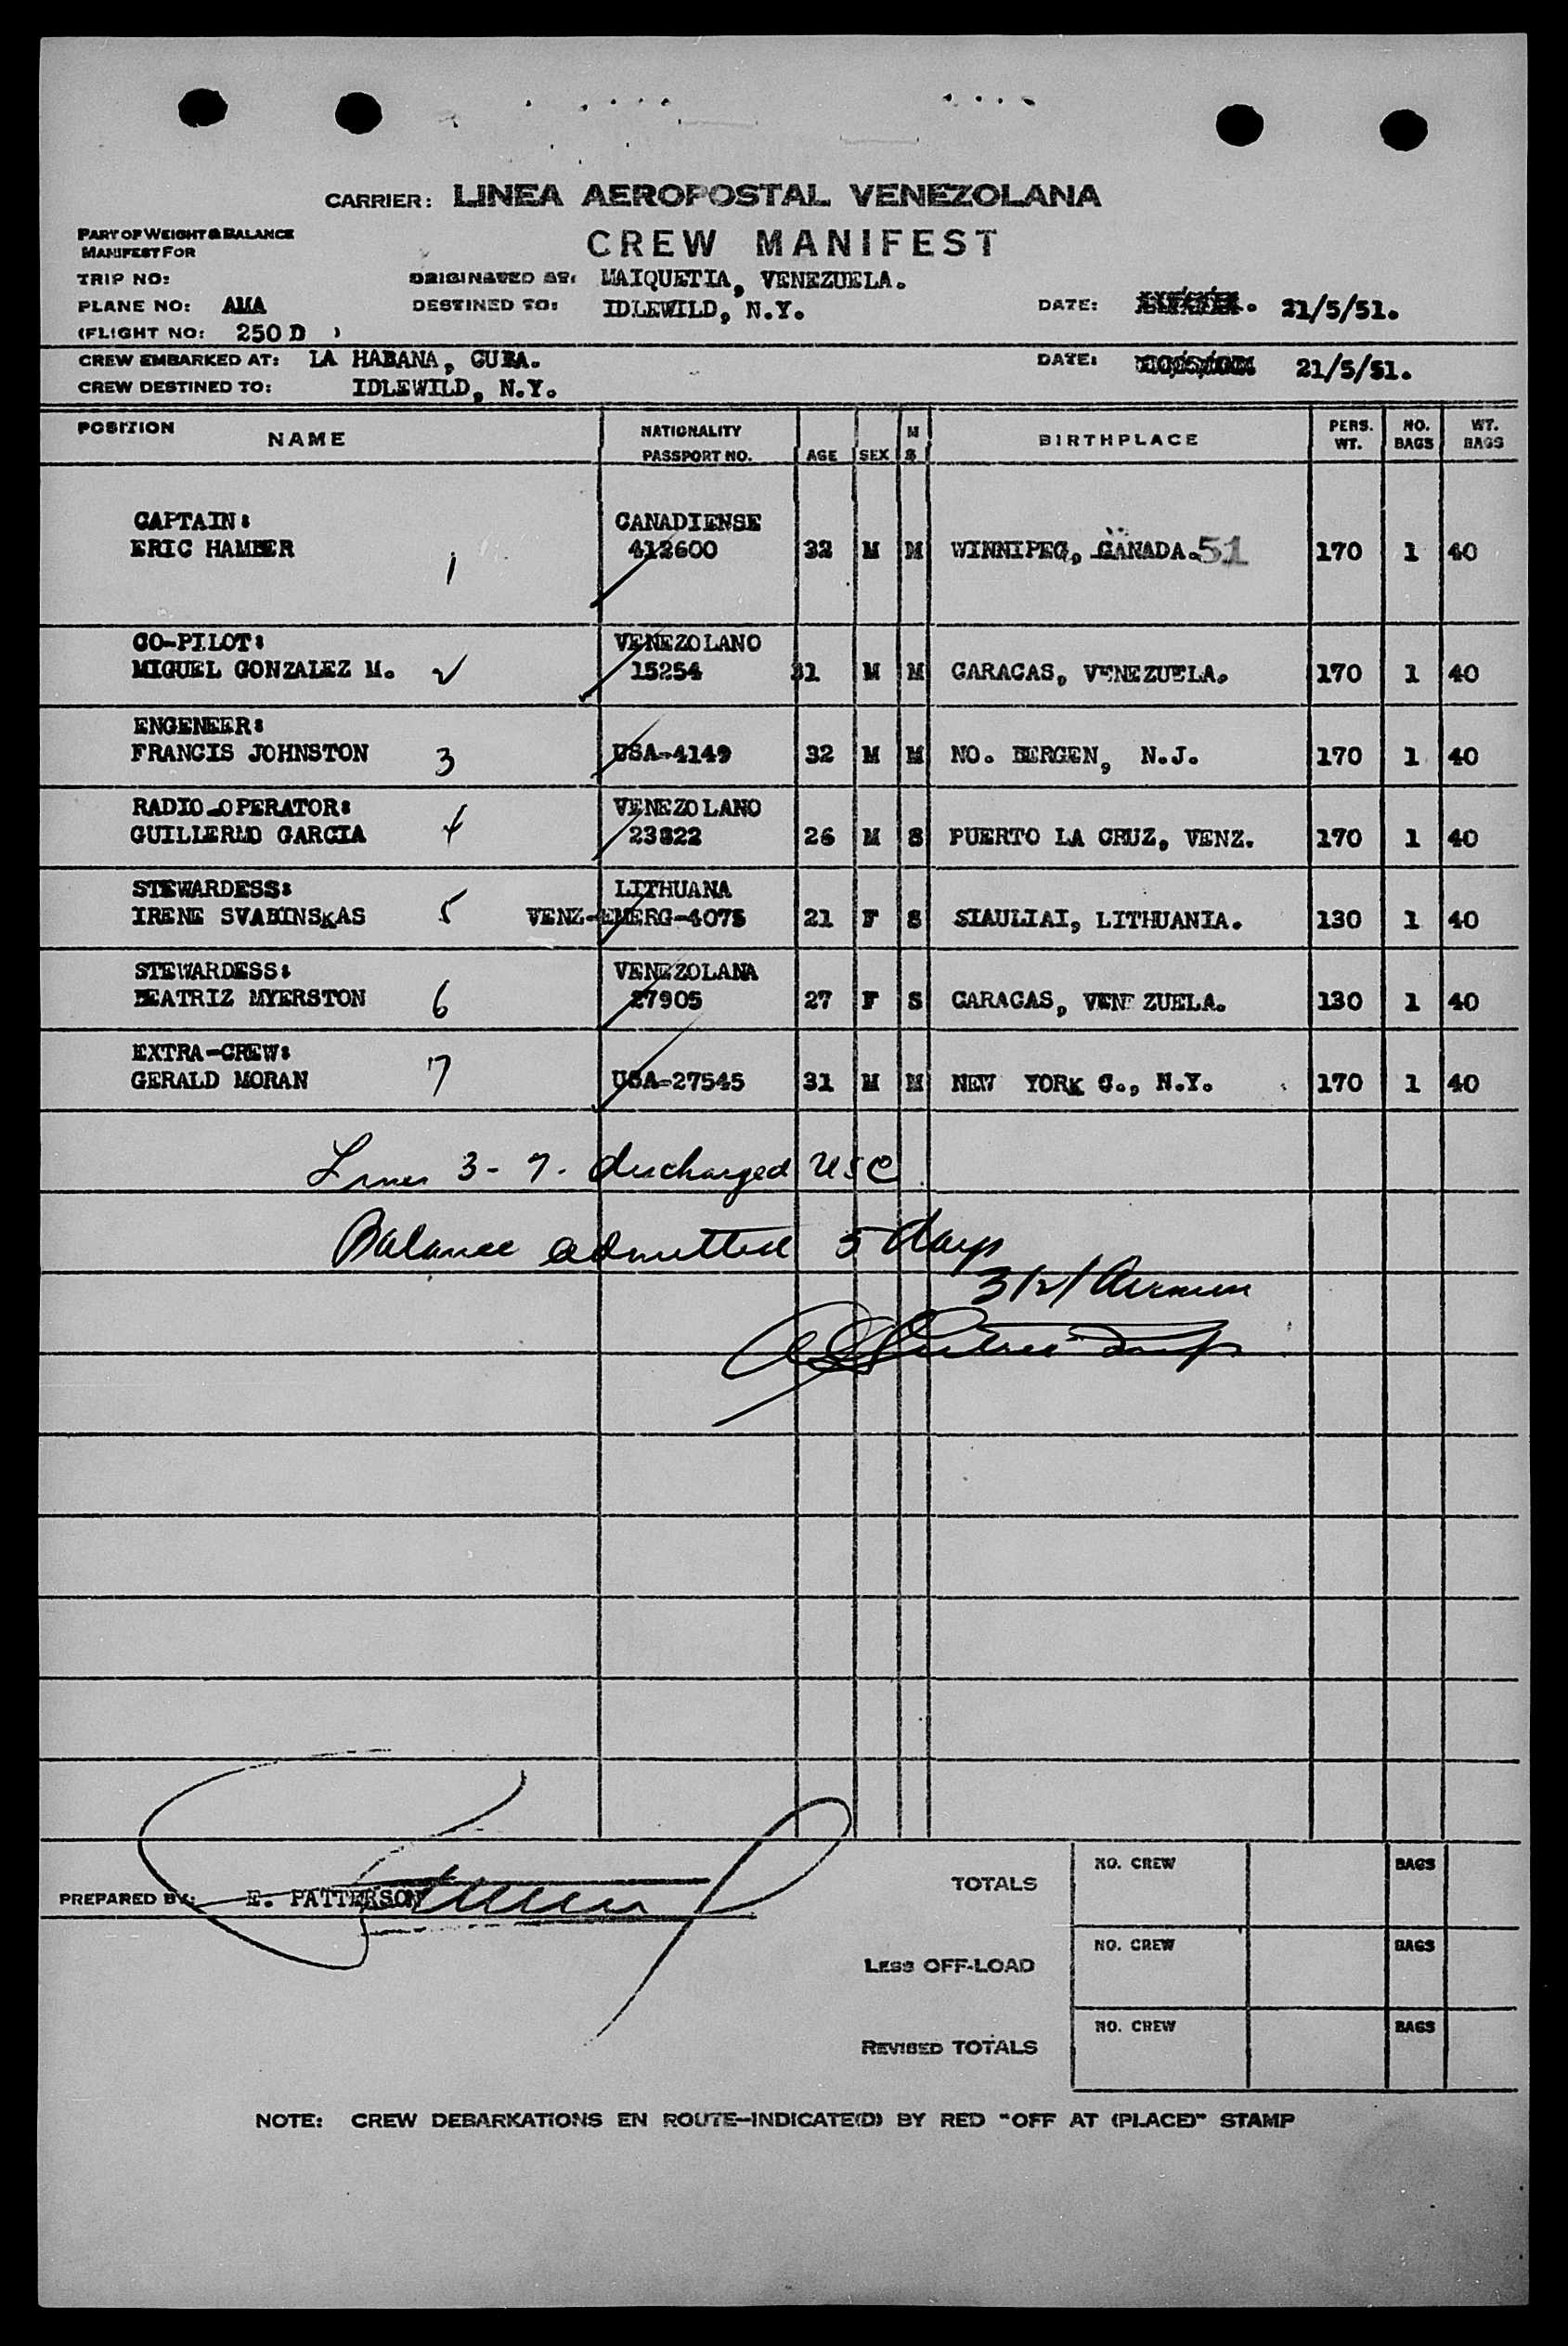 CARRIER: LINEA AEROPOSTAL VENEZOLANA
PART OF WEIGHT & BALANCE
MANIFEST FOR
CREW MANIFEST
TRIP NO: ORIGINATED AT: MAIQUETIA, VENEZUELA.
PLANE NO: AMA DESTINED TO: IDLEWILD, N.Y. DATE: 21/5/51.
(FLIGHT NO: 250 D )
CREW EMBARKED AT: LA HABANA, CUBA. DATE: 21/5/51.
CREW DESTINED TO: IDLEWILD, N.Y.
POSITION NAME NATIONALITY PASSPORT NO. AGE SEX M S BIRTHPLACE PERS. WT. NO. BAGS WT. BAGS
CAPTAIN: CANADIENSE
ERIC HAMBER 1 412600 32 M M WINNIPEG, CANADA. 51 170 1 40
CO-PILOT: VENEZOLANO
MIGUEL GONZALEZ M. 2 15254 31 M M CARACAS, VENEZUELA. 170 1 40
ENGENEER:
FRANCIS JOHNSTON 3 USA-4149 32 M M NO. BERGEN, N.J. 170 1 40
RADIO-OPERATOR: VENEZOLANO
GUILLERMO GARCIA 4 23822 26 M S PUERTO LA CRUZ, VENZ. 170 1 40
STEWARDESS: LITHUANA
IRENE SVABINSKAS 5 VENZ-EMERG-4075 21 F S SIAULIAI, LITHUANIA. 130 1 40
STEWARDESS: VENEZOLANA
BEATRIZ MYERSTON 6 27905 27 F S CARACAS, VENEZUELA. 130 1 40
EXTRA-CREW:
GERALD MORAN 7 USA-27545 31 M M NEW YORK C., N.Y. 170 1 40
Lines 3-7. discharged USC
Balance admitted 5 days
PREPARED BY: E. PATTERSON
TOTALS NO. CREW BAGS
LESS OFF-LOAD NO. CREW BAGS
REVISED TOTALS NO. CREW BAGS
NOTE: CREW DEBARKATIONS EN ROUTE-INDICATE(D) BY RED "OFF AT (PLACE)" STAMP